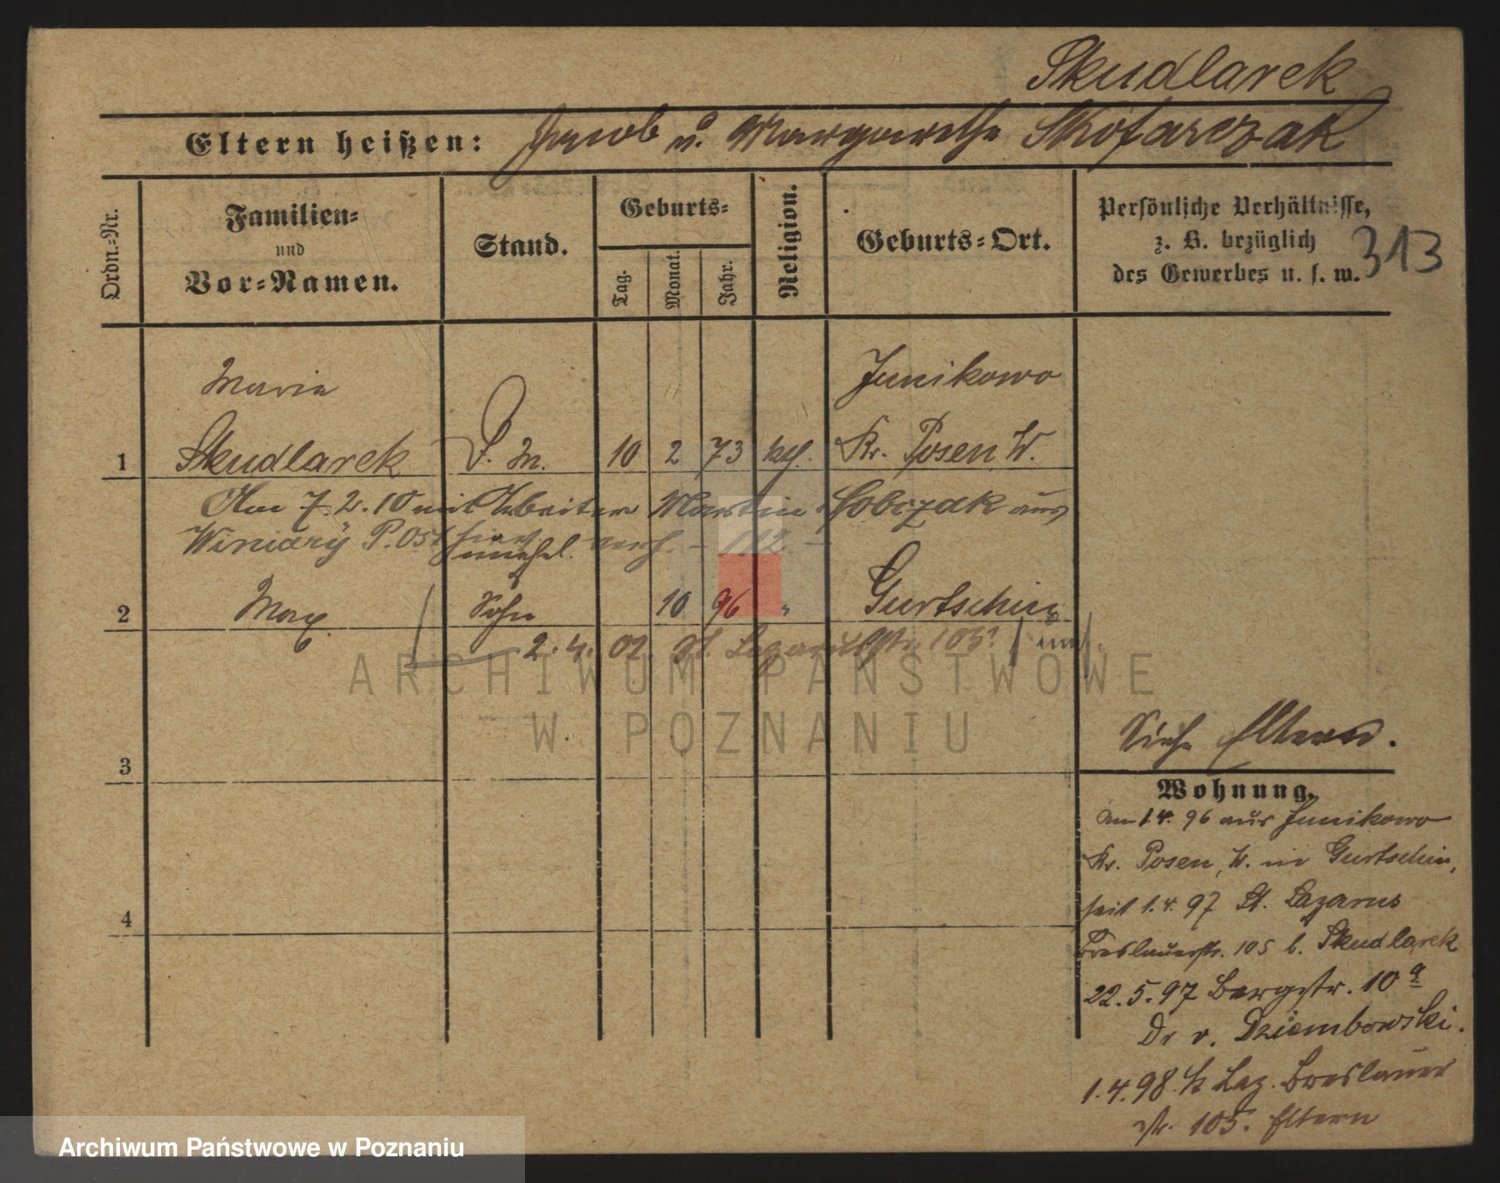 Skudlarek
Eltern heißen: Jacob u. Margarethe Skotarczak
Ordn.-Nr.
Familien-
und
Vor-Namen.
Stand.
Geburts-
Tag.
Monat.
Jahr.
Religion.
Geburts-Ort.
Persönliche Verhältnisse,
z. B. bezüglich
des Gewerbes u. s. w.
313
Maria Junikowo
1 Skudlarek D. M. 10 2 73 kth. Kr. Posen W.
Am 7.2.10 mit Arbeiter Martin Sobczak aus
Winiary P. Ost hier verh. - 112 -
unehel.
2 Max. Sohn 10 96 " Gurtschin
2. 4. 02. St. Lazarus 105
ARCHIWUM PAŃSTWOWE
W POZNANIU
3
4
Siehe Eltern.
Wohnung.
am 1.4. 96 aus Junikowo
Kr. Posen, W. in Gurtschin,
seit 1.4. 97 St. Lazarus
Breslauerstr. 105 b. Skudlarek
22.5.97 Bergstr. 10 a
Dr v. Dziembowski.
1.4.98. St Laz. Breslauer
str. 105. Eltern
Archiwum Państwowe w Poznaniu